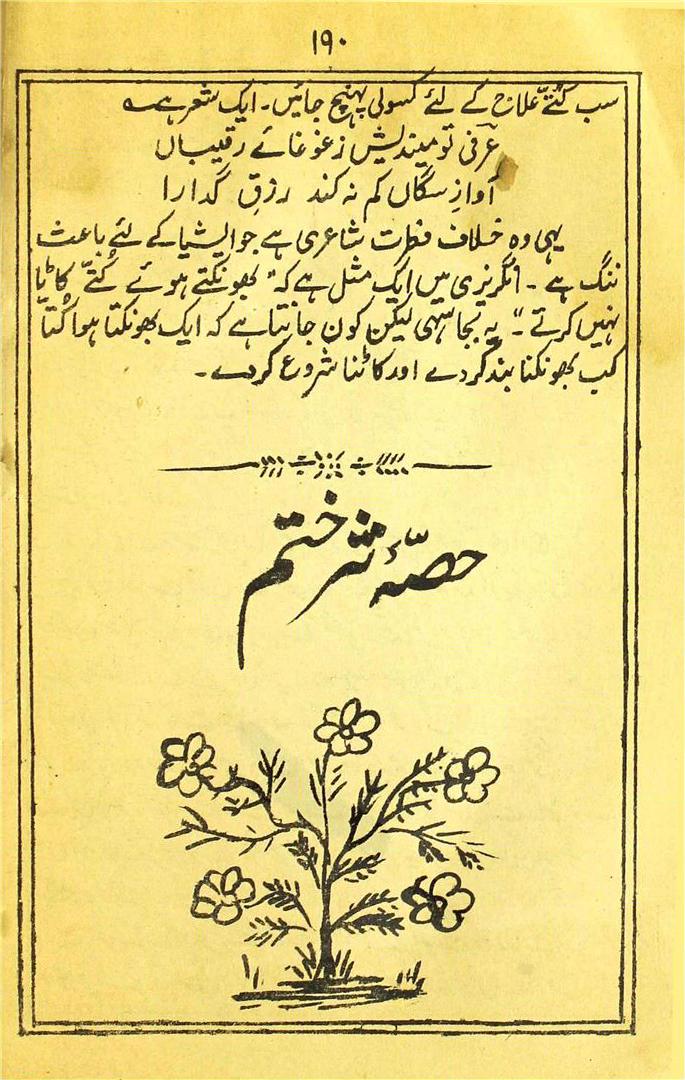 ۱۹۰
سب کتّے علاج کے لئے کسولی پہنچ جائیں۔ ایک شعر ہے
عرفی تو میندیش زغوغائے رقیباں
آوازِ سگاں کم نہ کند رزقِ گدارا
یہی وہ خلاف فطرت شاعری ہے جو ایشیا کے لئے باعث
ننگ ہے۔ انگریزی میں ایک مثل ہے کہ "بھونکتے ہوئے کُتّے کاٹا
نہیں کرتے"۔ یہ بجا سہی لیکن کون جانتا ہے کہ ایک بھونکتا ہوا کُتّا
کب بھونکنا بند کردے اور کاٹنا شروع کردے۔
حصّۂ نثر ختم